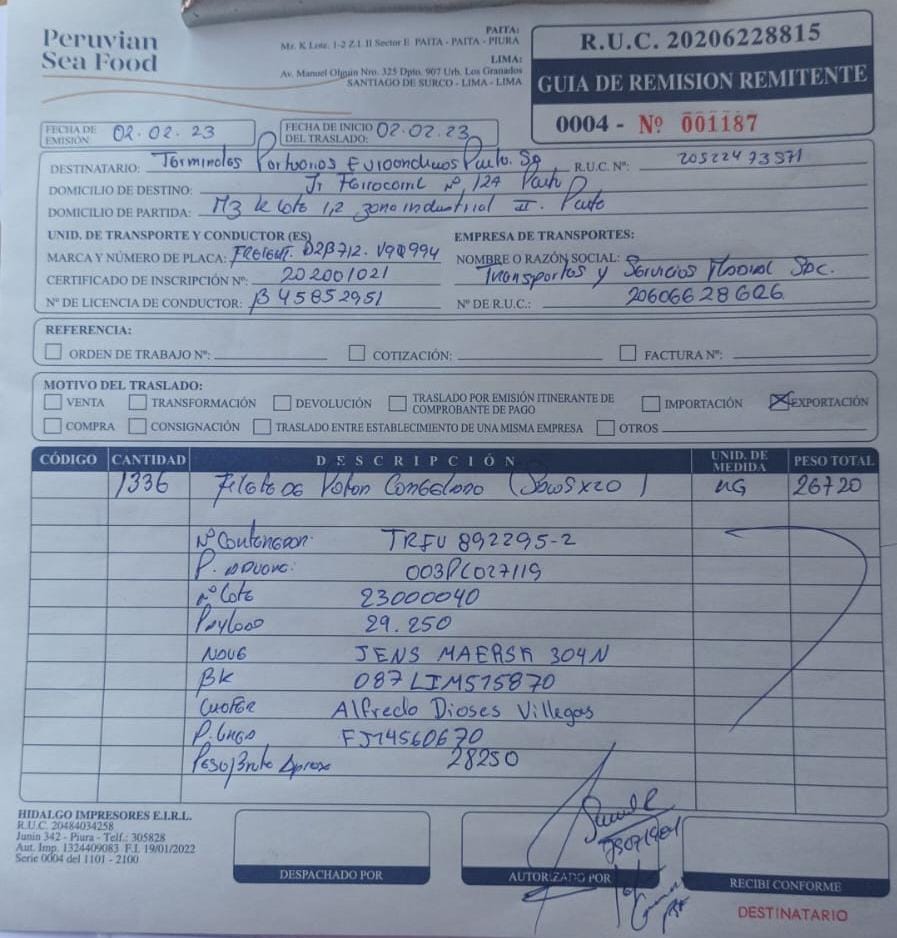 Peruvian
Sea Food
PAITA:
Mz. K Lote. 1-2 Z.I. II Sector E PAITA - PAITA - PIURA
LIMA:
Av. Manuel Olguin Nro. 325 Dpto. 907 Urb. Los Granados
SANTIAGO DE SURCO - LIMA - LIMA
R.U.C. 20206228815
GUIA DE REMISION REMITENTE
0004 - Nº 001187
FECHA DE EMISIÓN 02.02.23
FECHA DE INICIO DEL TRASLADO: 02.02.23
DESTINATARIO: Terminales Portuarios Euroandinos Paita. Sa R.U.C. Nº: 20522473571
DOMICILIO DE DESTINO: Jr Ferrocarril Nº 124 Paita
DOMICILIO DE PARTIDA: Mz K Lote 1,2 zona industrial II. Paita
UNID. DE TRANSPORTE Y CONDUCTOR (ES) EMPRESA DE TRANSPORTES:
MARCA Y NÚMERO DE PLACA: FREIGHT. D2B712. V9Q994 NOMBRE O RAZÓN SOCIAL:
CERTIFICADO DE INSCRIPCIÓN Nº: 202001021 Transportes y Servicios Sac.
Nº DE LICENCIA DE CONDUCTOR: B45852951 Nº DE R.U.C.: 20606628626
REFERENCIA:
ORDEN DE TRABAJO Nº: COTIZACIÓN: FACTURA Nº:
MOTIVO DEL TRASLADO:
VENTA TRANSFORMACIÓN DEVOLUCIÓN TRASLADO POR EMISIÓN ITINERANTE DE COMPROBANTE DE PAGO IMPORTACIÓN EXPORTACIÓN
COMPRA CONSIGNACIÓN TRASLADO ENTRE ESTABLECIMIENTO DE UNA MISMA EMPRESA OTROS
CÓDIGO CANTIDAD DESCRIPCIÓN UNID. DE MEDIDA PESO TOTAL
1336 Filete de Volador Congelado (Sacos x20) KG 26720
Nº Contenedor: TRIU 892295-2
P. Aduana: 003PC027119
Nº Lote 23000040
Payload 29.250
Nave JENS MAERSK 304N
BK 087LIM575870
Chofer Alfredo Dioses Villegas
P. Linea FJ14560670
Peso/Bruto Aprox 28250
HIDALGO IMPRESORES E.I.R.L.
R.U.C. 20484034258
Junin 342 - Piura - Telf.: 305828
Aut. Imp. 1324409083 F.I. 19/01/2022
Serie 0004 del 1101 - 2100
DESPACHADO POR
AUTORIZADO POR
RECIBI CONFORME
DESTINATARIO